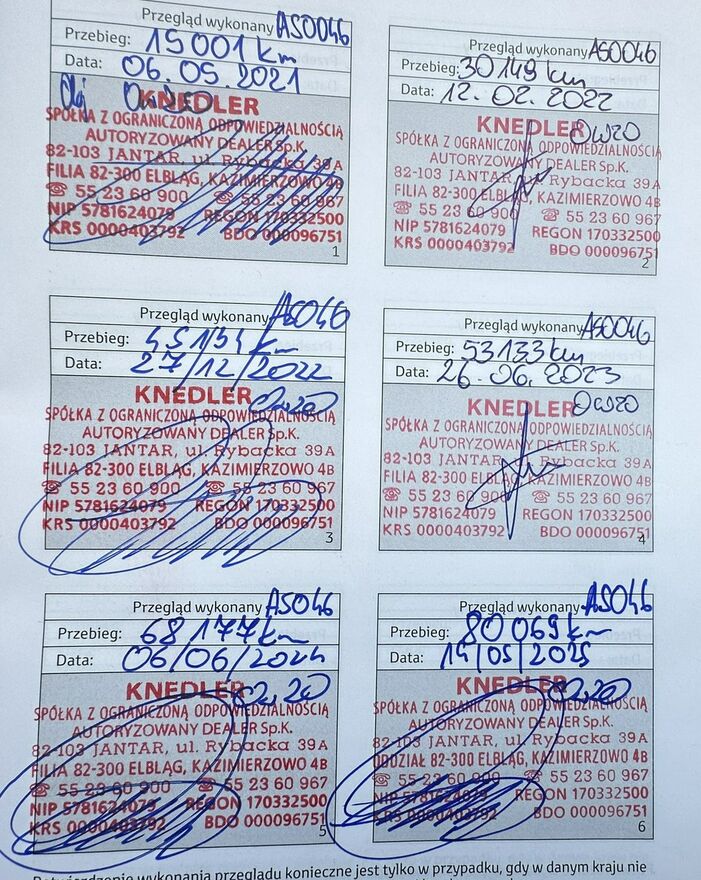 Przegląd wykonany ASO046
Przebieg: 15 001 km
Data: 06.05.2021
Olej 0w20
KNEDLER
SPÓŁKA Z OGRANICZONĄ ODPOWIEDZIALNOŚCIĄ
AUTORYZOWANY DEALER Sp.K.
82-103 JANTAR, ul. Rybacka 39A
FILIA 82-300 ELBLĄG, KAZIMIERZOWO 4B
☎ 55 23 60 900 ☎ 55 23 60 967
NIP 5781624079 REGON 170332500
KRS 0000403792 BDO 000096751
1
Przegląd wykonany ASO046
Przebieg: 30 149 km
Data: 12.02.2022
KNEDLER 0w20
SPÓŁKA Z OGRANICZONĄ ODPOWIEDZIALNOŚCIĄ
AUTORYZOWANY DEALER Sp.K.
82-103 JANTAR, ul. Rybacka 39A
FILIA 82-300 ELBLĄG, KAZIMIERZOWO 4B
☎ 55 23 60 900 ☎ 55 23 60 967
NIP 5781624079 REGON 170332500
KRS 0000403792 BDO 000096751
2
Przegląd wykonany ASO046
Przebieg: km
Data: 27/12/2022
KNEDLER 0w20
SPÓŁKA Z OGRANICZONĄ ODPOWIEDZIALNOŚCIĄ
AUTORYZOWANY DEALER Sp.K.
82-103 JANTAR, ul. Rybacka 39A
FILIA 82-300 ELBLĄG, KAZIMIERZOWO 4B
☎ 55 23 60 900 ☎ 55 23 60 967
NIP 5781624079 REGON 170332500
KRS 0000403792 BDO 000096751
3
Przegląd wykonany ASO046
Przebieg: 53133 km
Data: 26.06.2023
KNEDLER 0w20
SPÓŁKA Z OGRANICZONĄ ODPOWIEDZIALNOŚCIĄ
AUTORYZOWANY DEALER Sp.K.
82-103 JANTAR, ul. Rybacka 39A
FILIA 82-300 ELBLĄG, KAZIMIERZOWO 4B
☎ 55 23 60 900 ☎ 55 23 60 967
NIP 5781624079 REGON 170332500
KRS 0000403792 BDO 000096751
4
Przegląd wykonany ASO46
Przebieg: 68 177 km
Data: 06/06/2024
KNEDLER 0w20
SPÓŁKA Z OGRANICZONĄ ODPOWIEDZIALNOŚCIĄ
AUTORYZOWANY DEALER Sp.K.
82-103 JANTAR, ul. Rybacka 39A
FILIA 82-300 ELBLĄG, KAZIMIERZOWO 4B
☎ 55 23 60 900 ☎ 55 23 60 967
NIP 5781624079 REGON 170332500
KRS 0000403792 BDO 000096751
5
Przegląd wykonany ASO46
Przebieg: 80 069 km
Data: 14/05/2025
KNEDLER 0w20
SPÓŁKA Z OGRANICZONĄ ODPOWIEDZIALNOŚCIĄ
AUTORYZOWANY DEALER Sp.K.
82-103 JANTAR, ul. Rybacka 39A
ODDZIAŁ 82-300 ELBLĄG, KAZIMIERZOWO 4B
☎ 55 23 60 900 ☎ 55 23 60 967
NIP 5781624079 REGON 170332500
KRS 0000403792 BDO 000096751
6
Potwierdzenie wykonania przeglądu konieczne jest tylko w przypadku, gdy w danym kraju nie